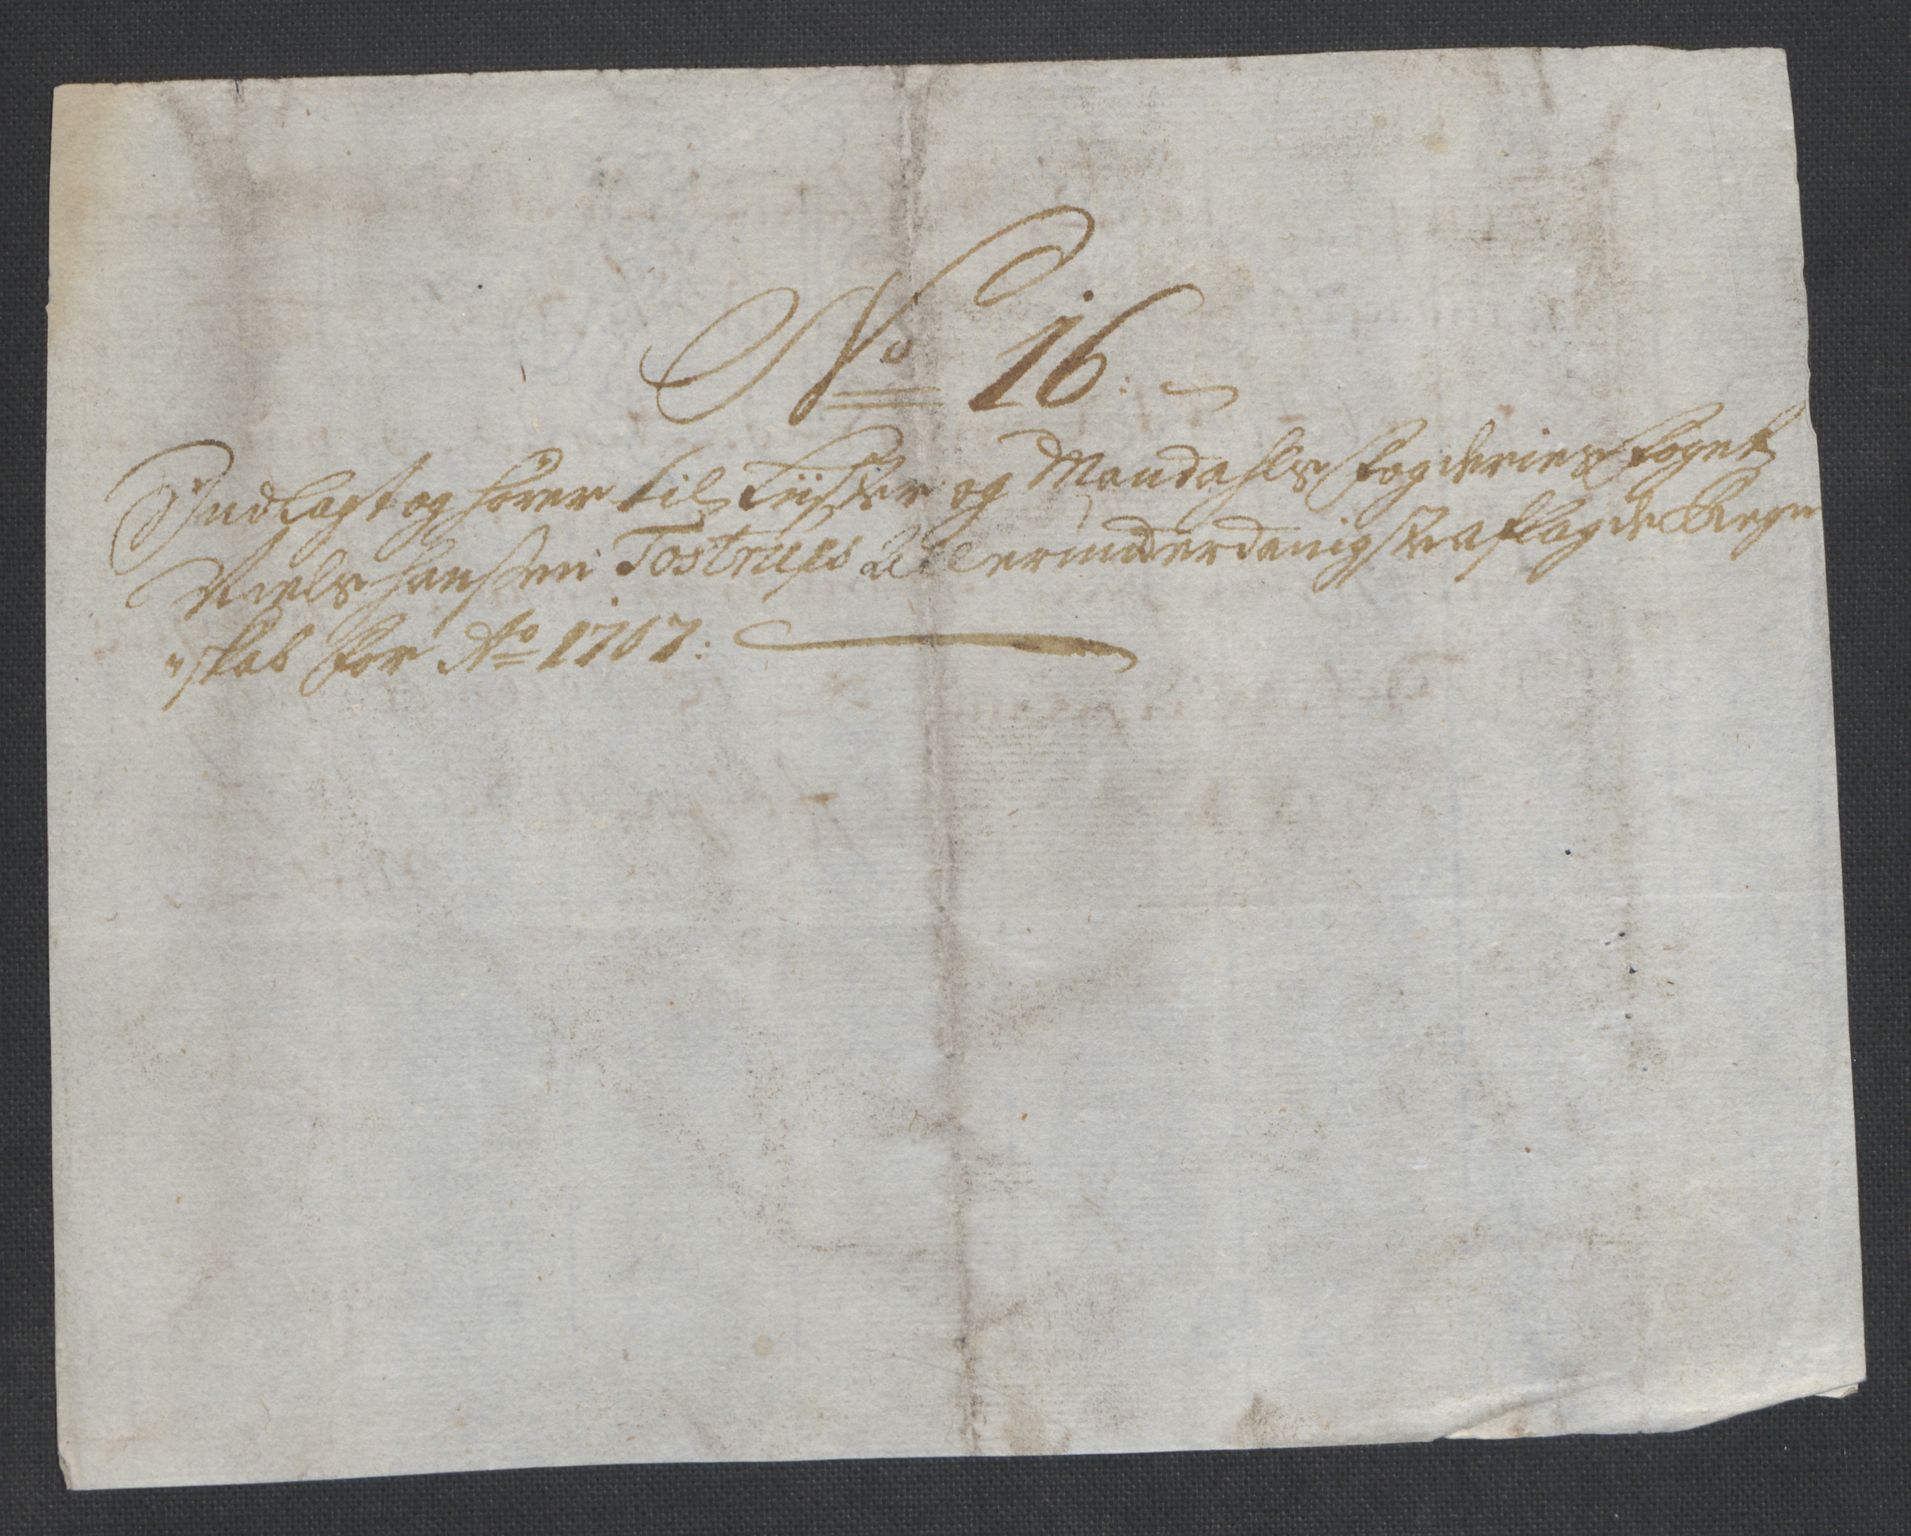 No 16:
Indlagt og hörer til Lister og Mandahls Fogderies Foget
Niels Hansen Tostrups allerunderdanigste aflagde Regn
"skab for Ao 1707: